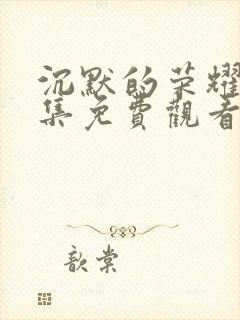 沉默的荣耀
集免費觀看
歆棠